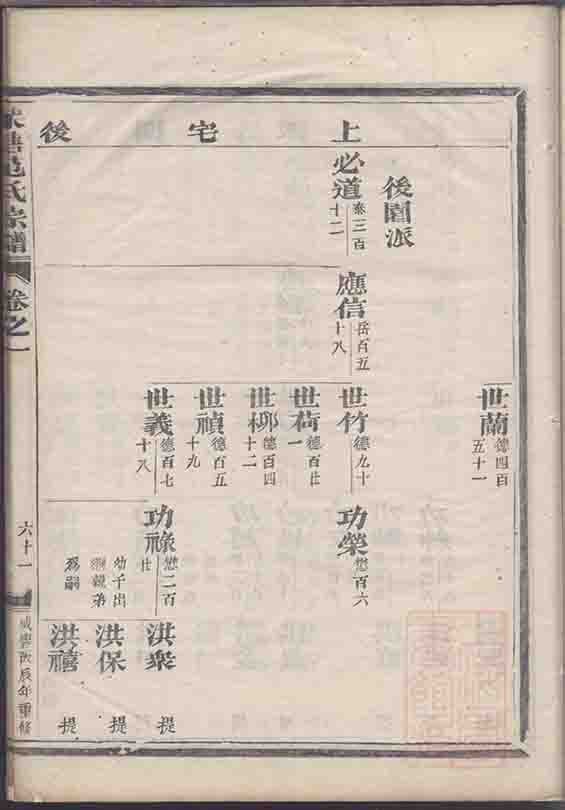 上宅後
世蘭 德四百五十一
後園派
必道 泰三百十二
應信 岳百五十八
世竹 德九十
功榮 懋百六
世荷 德百廿一
世柳 德百四十二
世禎 德百五十九
世義 德百七十八
功祿 懋二百廿
洪衆 提
幼子出
繼親弟
爲嗣
洪保 提
洪禧 提
范氏宗譜
卷之一
六十一
咸豐丙辰年重修